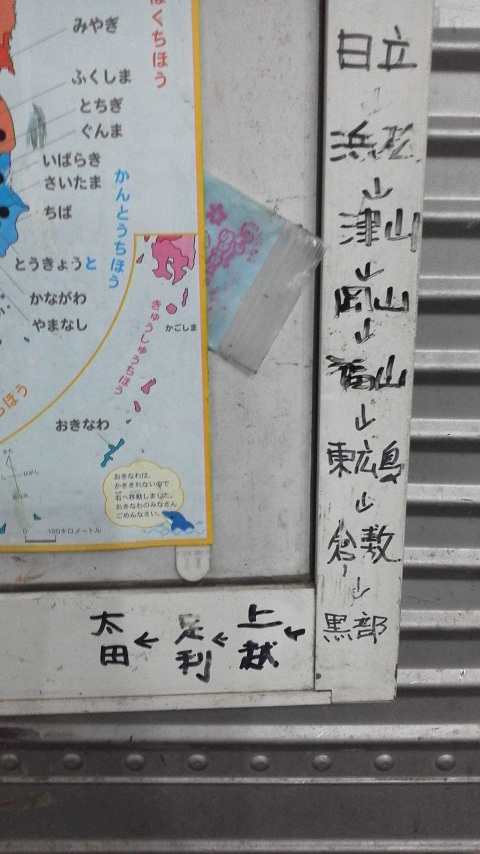 みやぎ
ふくしま
とちぎ
ぐんま
いばらき
さいたま
ちば
とうきょうと
かながわ
やまなし
くちほう
かんとうちほう
きゅうしゅうちほう
かごしま
おきなわ
おきなわは、
かききれないので
右へ移動しました。
おきなわのみなさん
ごめんなさい。
0 100キロメートル
日立
↓
浜松
↓
津山
↓
岡山
↓
福山
↓
東広島
↓
倉敷
↓
黒部
上越 ←
足利 ←
太田 ←